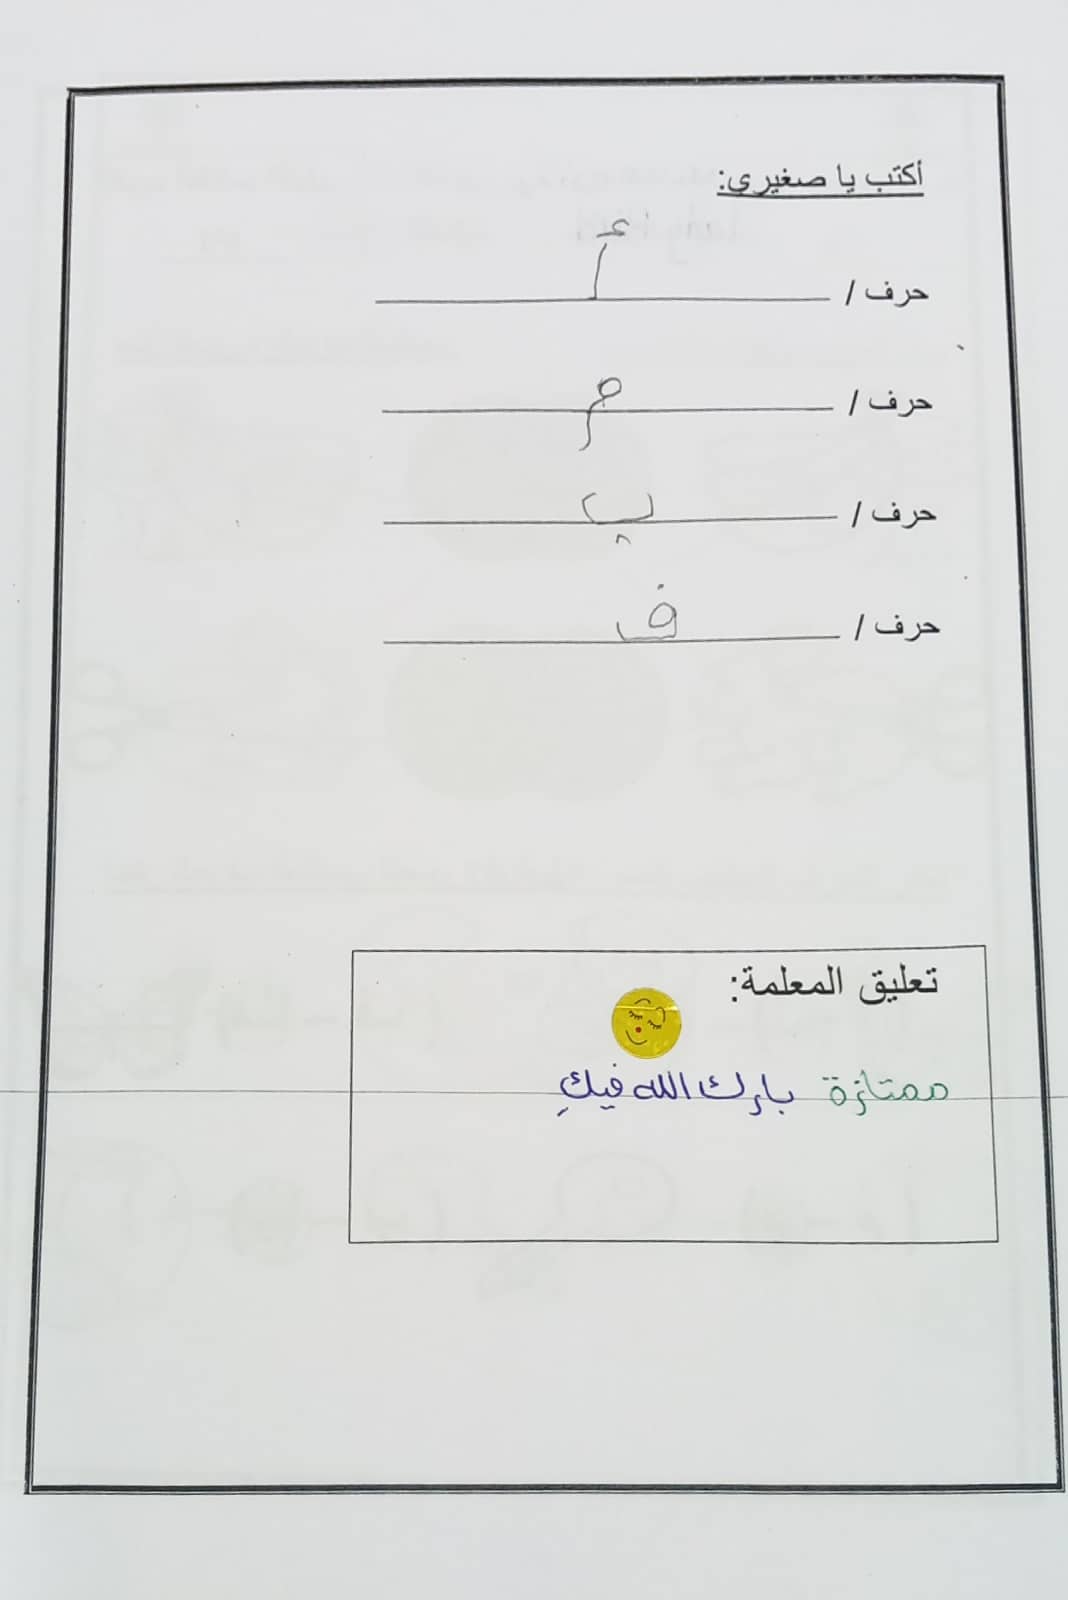 أكتب يا صغيري:
حرف / أ
حرف / م
حرف / ب
حرف / ف
تعليق المعلمة:
ممتازة بارك الله فيكِ